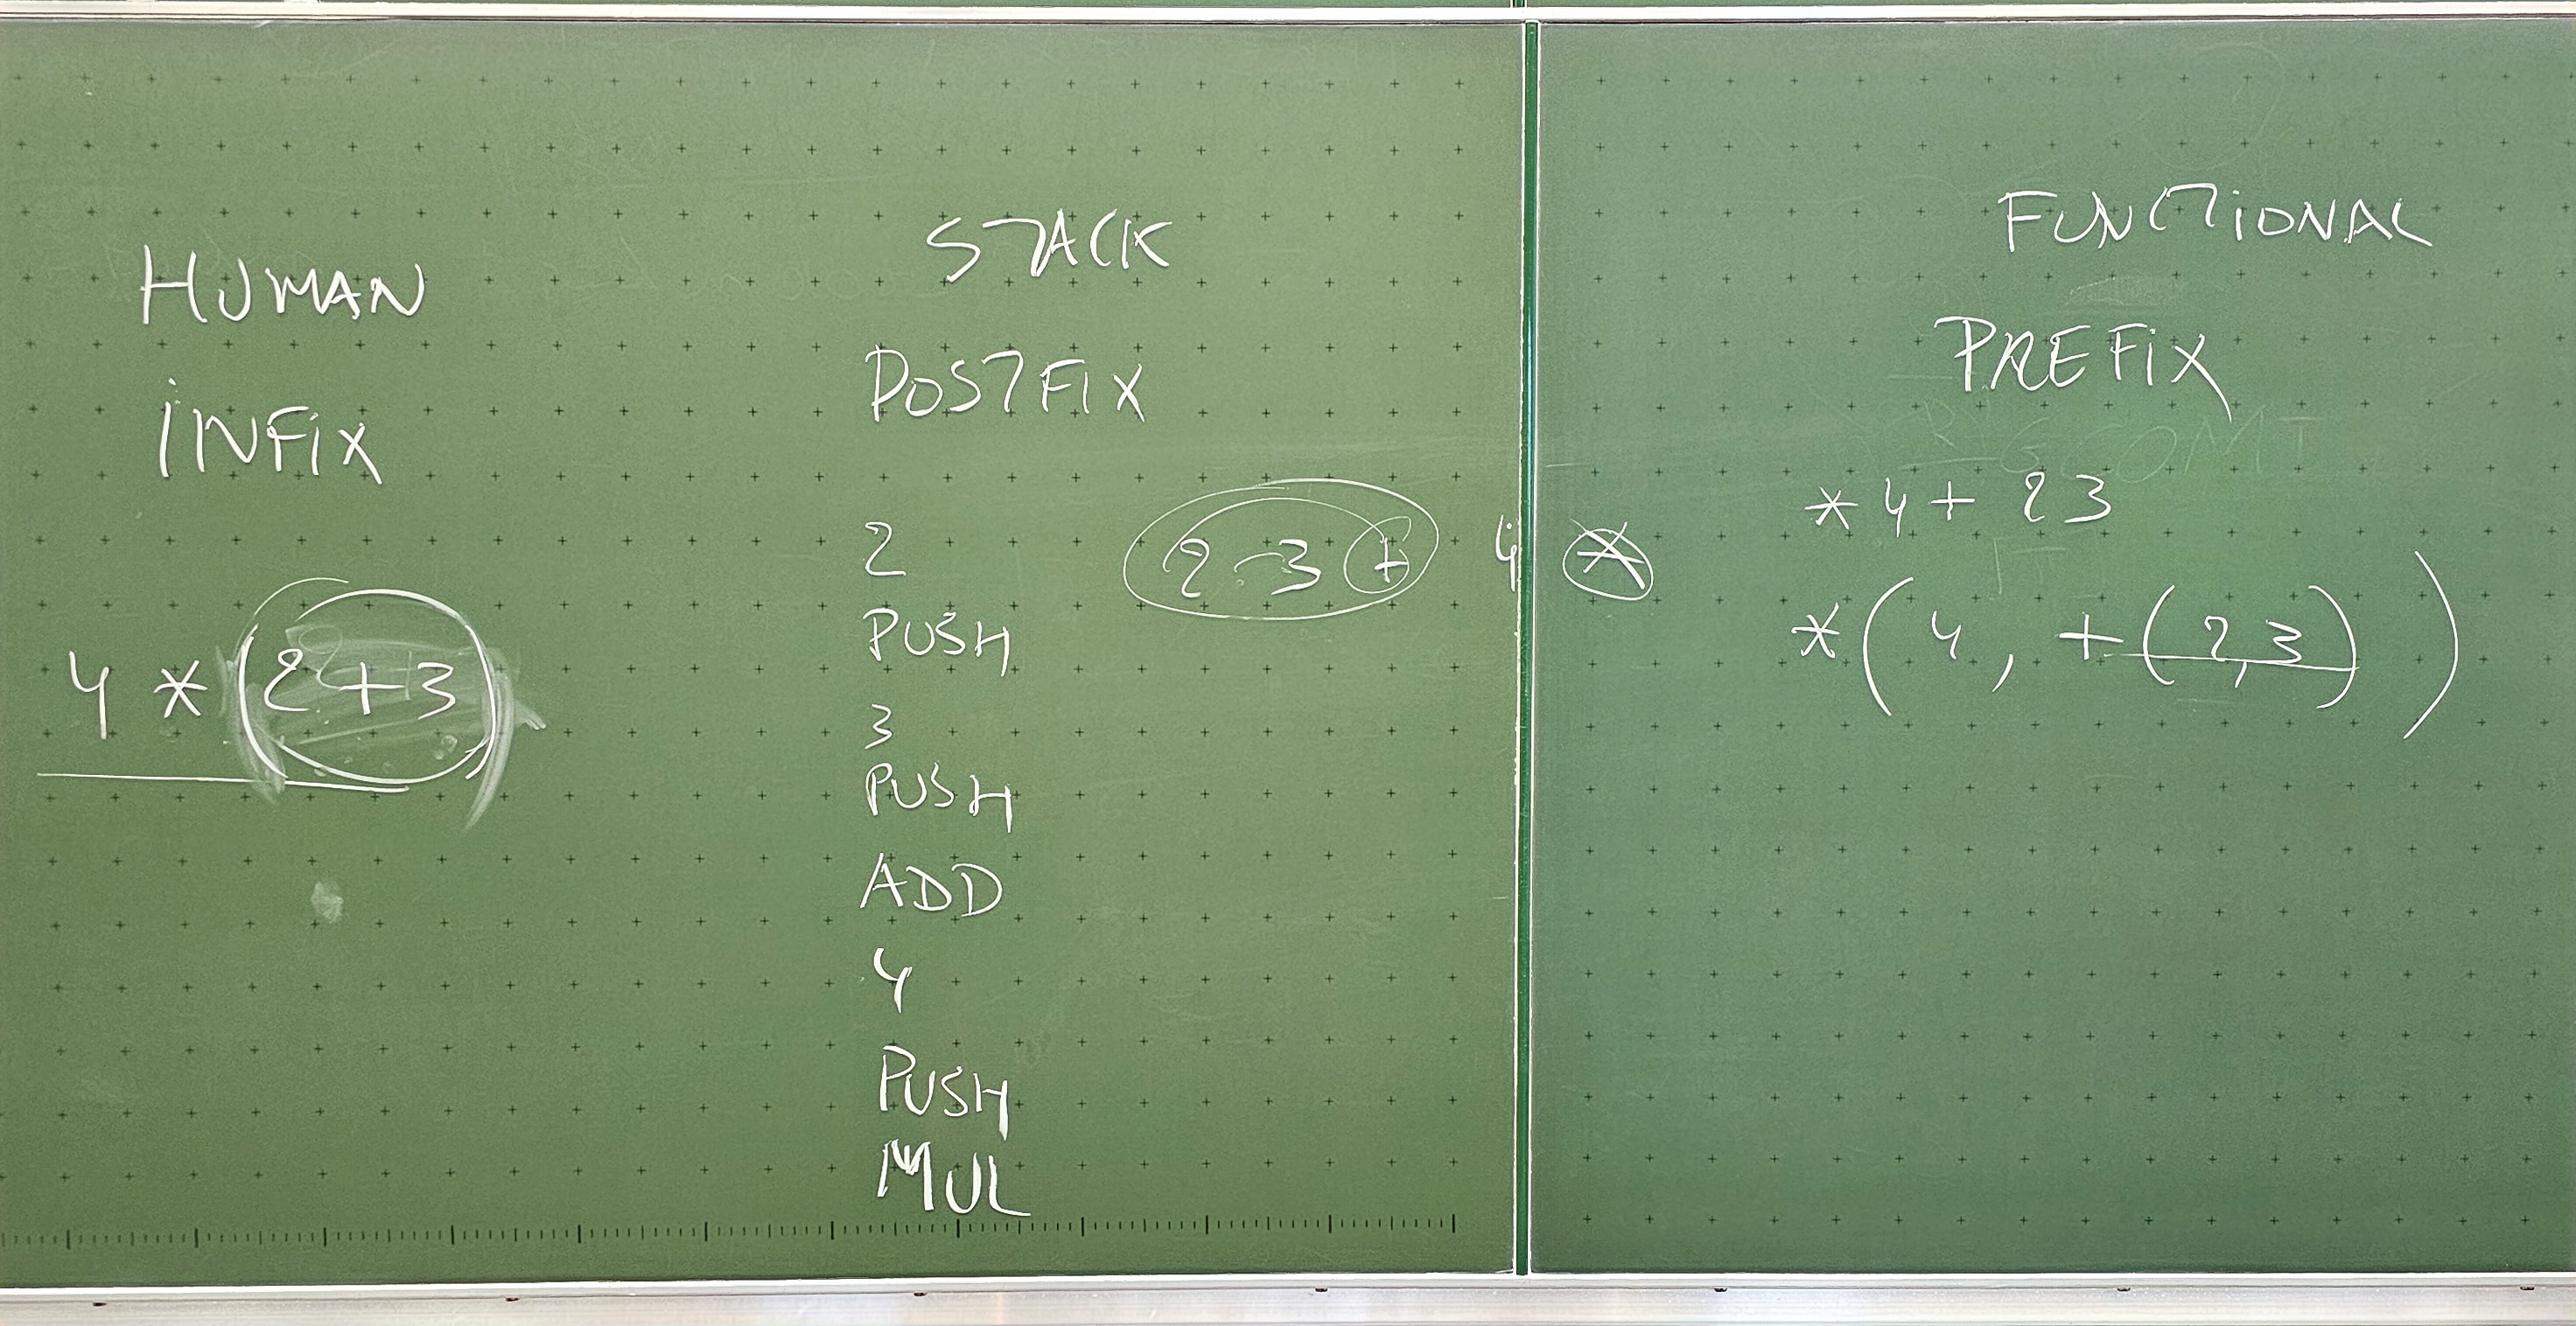 HUMAN
INFIX
4 * (2+3)
STACK
POSTFIX
2 3 + 4 *
2
PUSH
3
PUSH
ADD
4
PUSH
MUL
FUNCTIONAL
PREFIX
* 4 + 2 3
* ( 4 , + ( 2,3 ) )